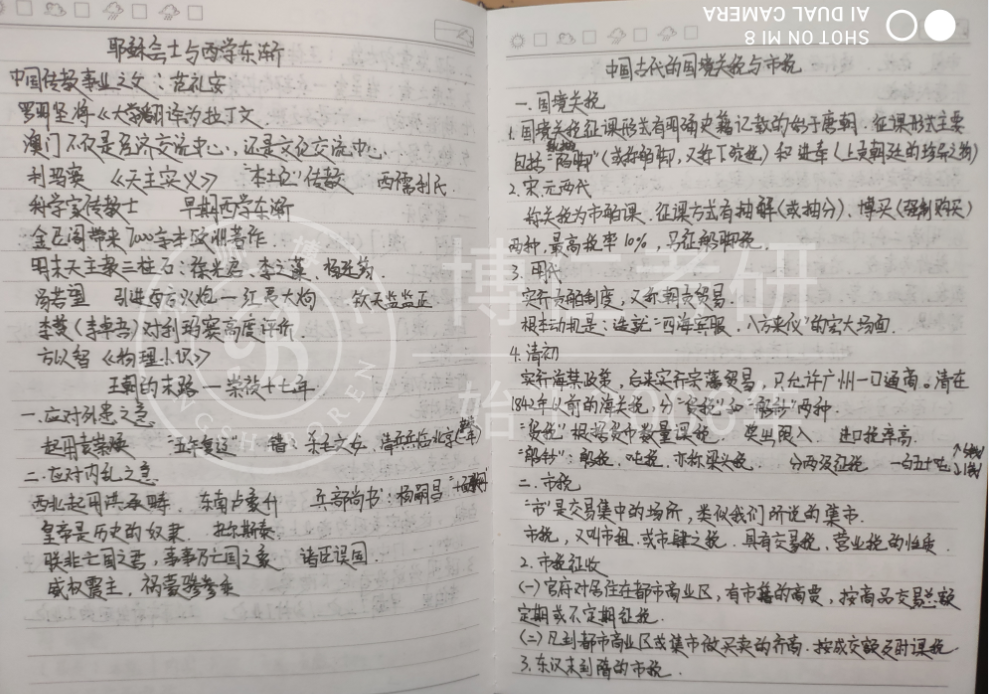 耶稣会士与西学东渐
中国传教事业之父：范礼安
罗明坚将《大学》翻译为拉丁文
澳门不仅是经济交流中心，还是文化交流中心.
利玛窦 《天主实义》 "本土化"传教 西儒利氏.
科学家传教士 早期西学东渐
金尼阁带来7000余本欧洲著作.
明末天主教三柱石：徐光启、李之藻、杨廷筠.
汤若望 引进西方火炮一红夷大炮 钦天监监正
李贽（李卓吾）对利玛窦高度评价.
方以智《物理小识》
王朝的末路 — 崇祯十七年.
一.应对外患之意
起用袁崇焕 "五年复辽" 清兵兵临北京
二.应对内乱之意
西北起用洪承畴. 东南卢象升 兵部尚书：杨嗣昌
皇帝是历史的奴隶. 托尔斯泰.
朕非亡国之君，事事乃亡国之象 诸臣误国
威权震主，祸萌骖乘
中国古代的国境关税与市税
一.国境关税
1.国境关税征课形式有明确史籍记载的始于唐朝.征课形式主要
包括"舶脚"（或称舶脚，又称下碇税）和进奉（上贡朝廷的珍异之物）
2.宋.元两代
称关税为市舶课.征课方式有抽解（或抽分）、博买（强制购买）
两种，最高税率10%，另征船脚税.
3.明代
实行贡舶制度，又称朝贡贸易.
根本动机是：造就"四海宾服，八方来仪"的宏大场面.
4.清初
实行海禁政策，后来实行宗藩贸易，只允许广州一口通商。清在
1842年以前的海关税，分"货税"和"船钞"两种.
"货税"根据货币数量课税. 奖出限入 进口税率高.
"船钞"：船税、吨税，亦称梁头税. 分两级征税 一百五十吨
二.市税
"市"是交易集中的场所，类似我们所说的集市.
市税，又叫市租.或市肆之税.具有交易税、营业税的性质.
2.市税征收
(一)官府对居住在都市商业区，有市籍的商贾，按商品交易总额
定期或不定期征税.
(二)凡到都市商业区或集市做买卖的行商.按成交额及时课税.
3.东汉末到隋的市税.
SHOT ON MI 8
AI DUAL CAMERA
博仁考研
BOSHIBOREN